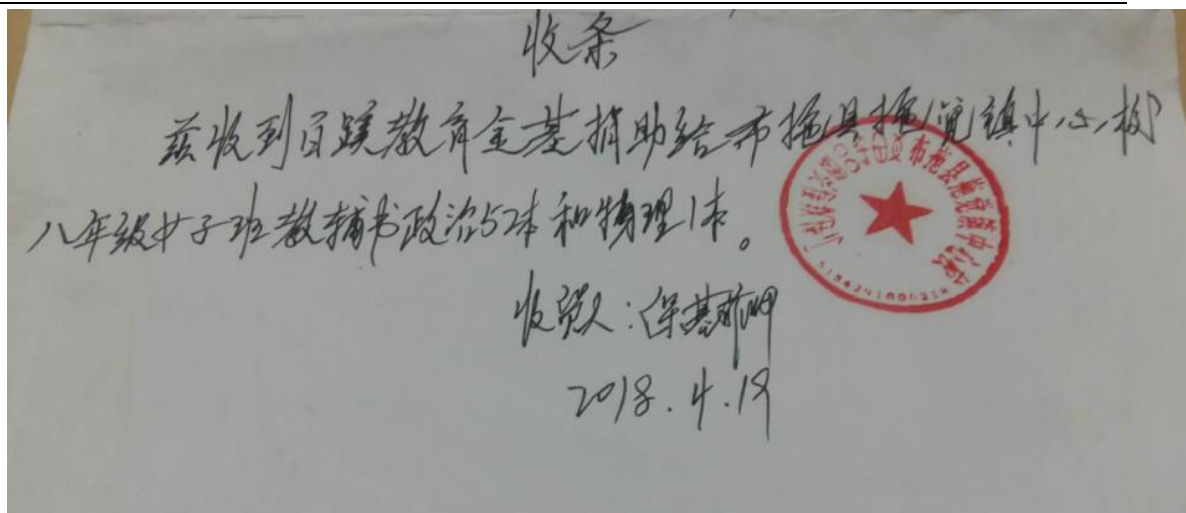 收条
兹收到百蹊教育金基捐助给布拖县拖觉镇中心校
八年级女子班教辅书政治52本和物理1本。
收货人:保基
2018.4.19
布拖县拖觉镇中心校